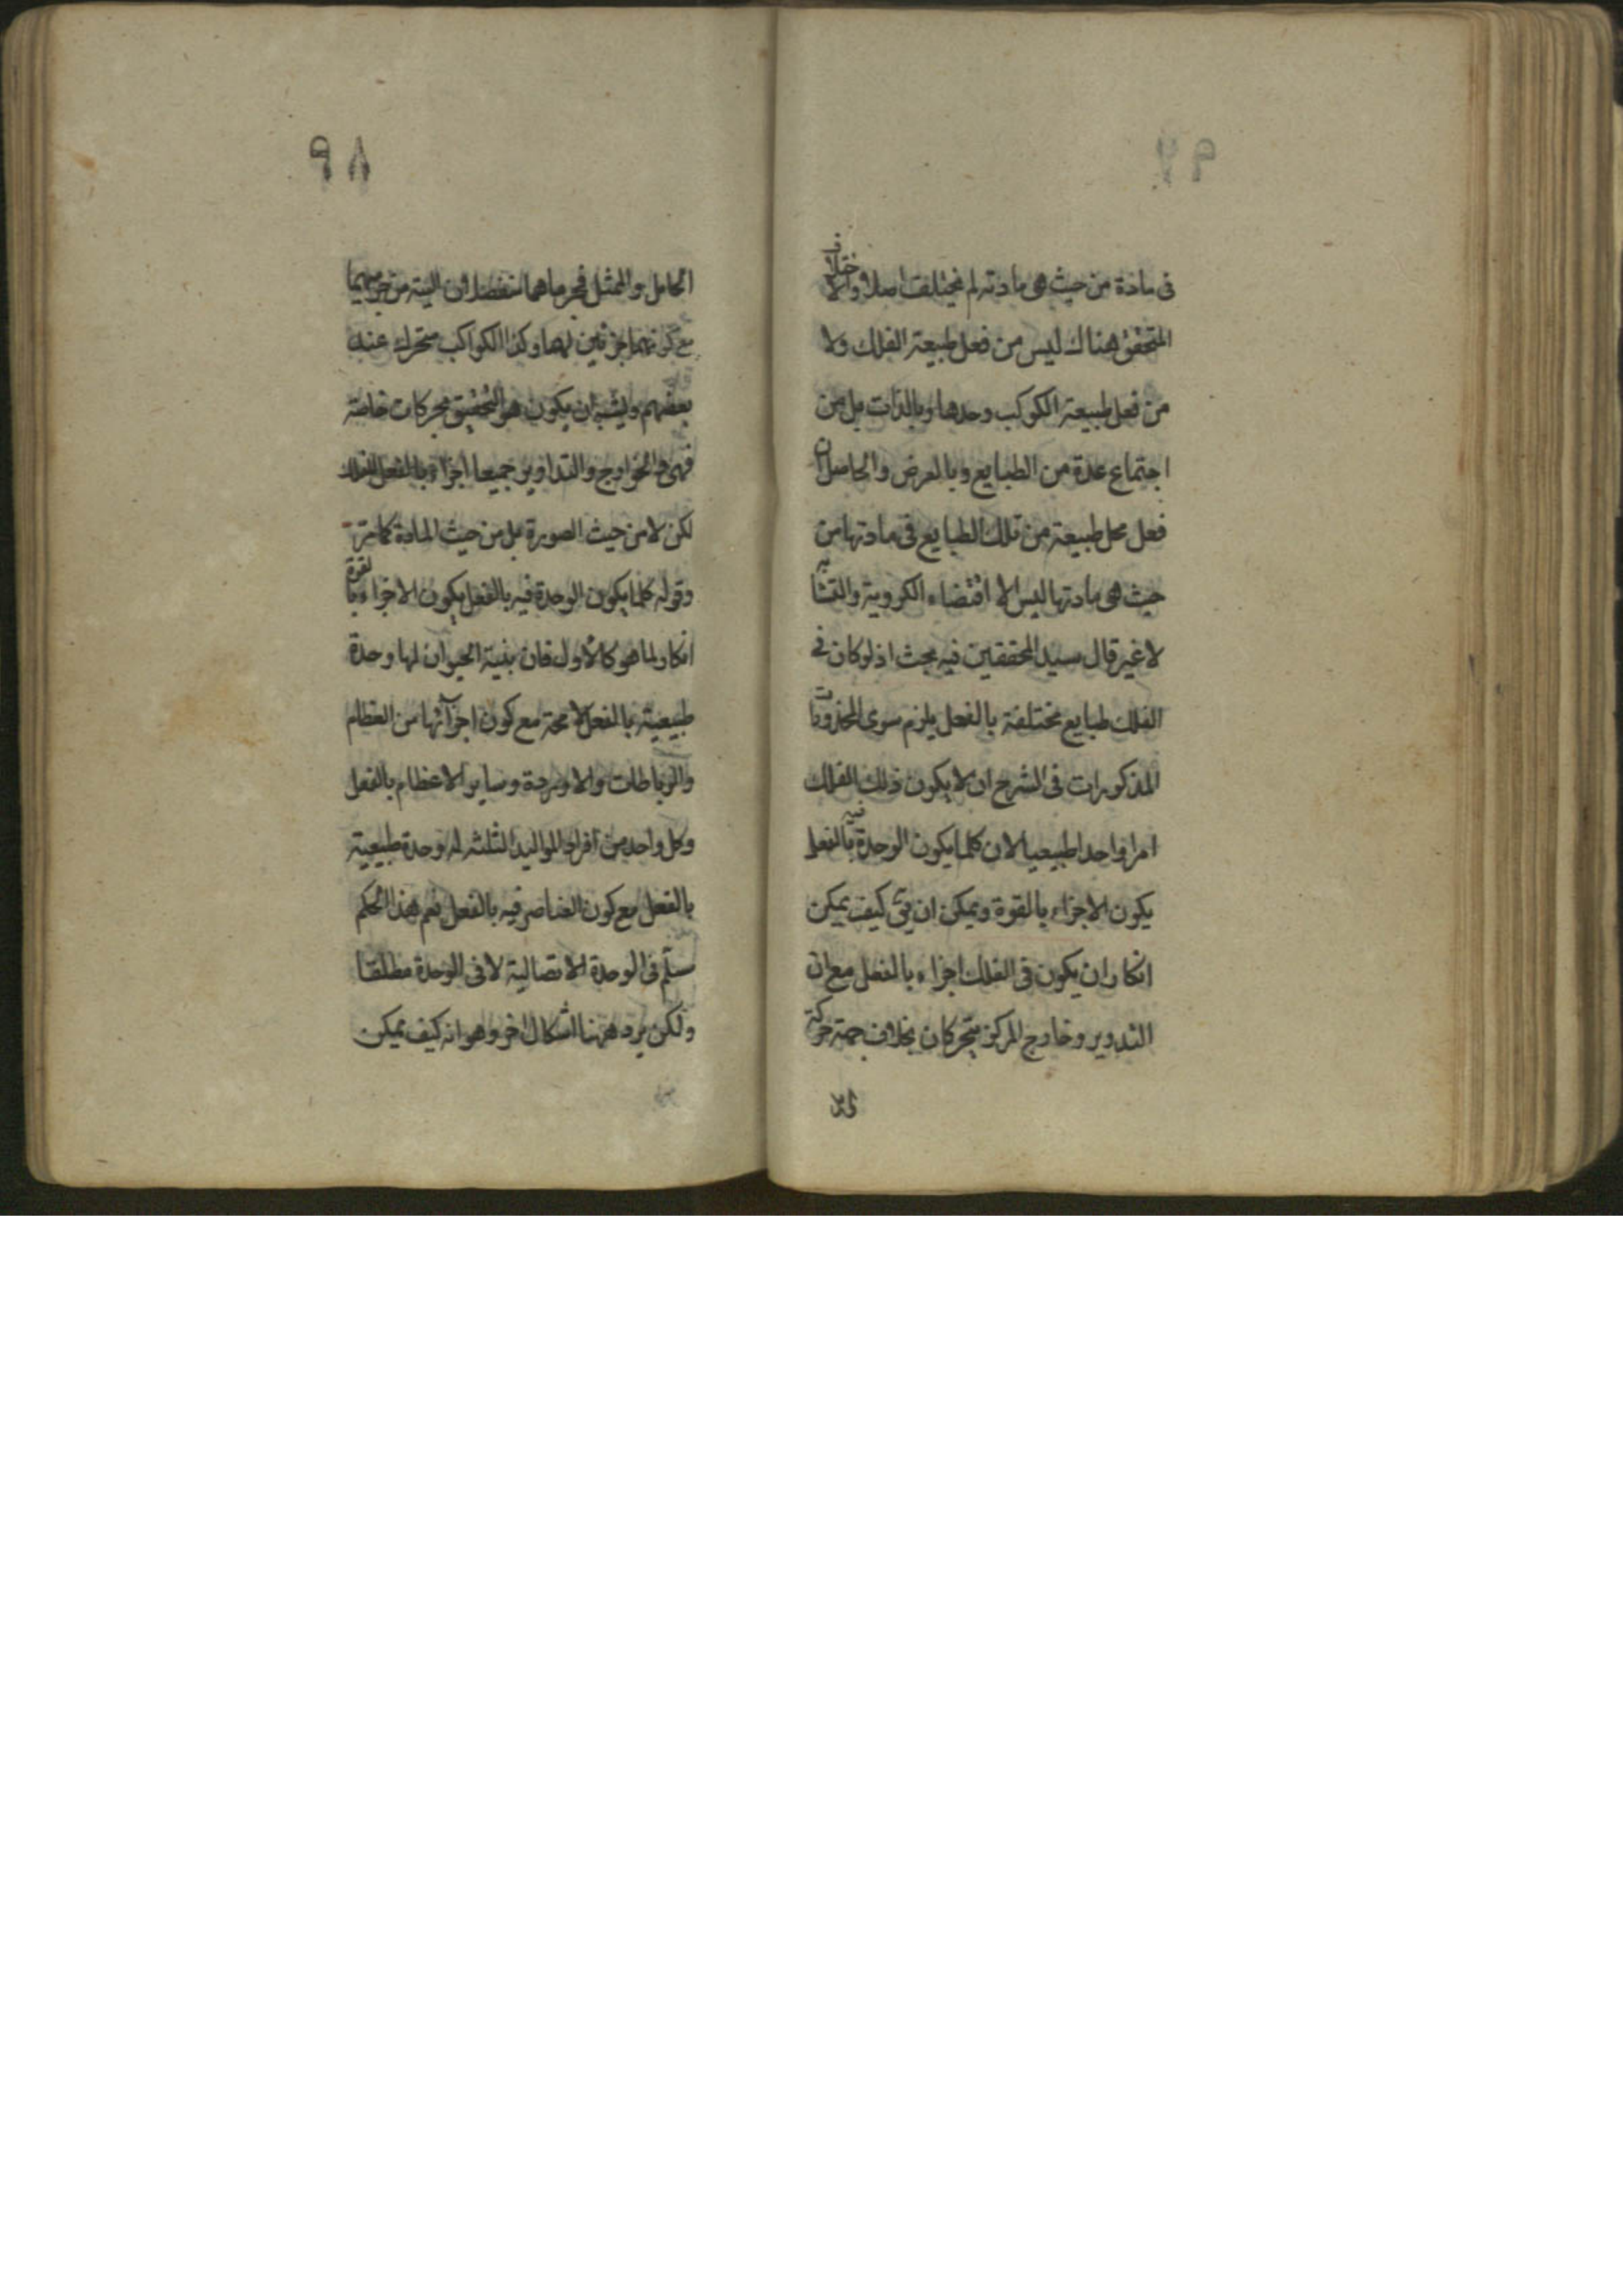 ٩٧
فى مادة من حيث هى مادته لم يختلف اصلا والاختلاف
المتحقق هناك ليس من فعل طبيعة الفلك ولا
من فعل طبيعة الكوكب وحدها وبالذات بل من
اجتماع عدة من الطبايع وبالعرض والحاصل ان
فعل كل طبيعة من تلك الطبايع فى مادتها من
حيث هى مادتها ليس الا اقتضاء الكروية والتشابه
لا غير قال سيد المحققين فيه بحث اذ لو كان فى
الفلك طبايع مختلفة بالفعل يلزم سوى المحذورات
المذكورات فى الشرح ان لا يكون ذلك الفلك
امرا واحدا طبيعيا لان كلما يكون الوحدة فيه بالفعل
يكون الاجزاء بالقوة ويمكن ان يق كيف يمكن
انكار ان يكون فى الفلك اجزاء بالفعل مع ان
التدوير وخارج المركز يتحركان بخلاف جهة حركة
٩٨
الحامل والممثل فجرماهما منفصلان البتة من جرميهما
مع كونهما جزئين لهما وكذا الكواكب متحرك عند
بعضهم ويشبه ان يكون هو التحقيق بحركات خاصة
فهى والخوارج والتداوير جميعا اجزاء بالفعل للفلك
لكن لا من حيث الصورة بل من حيث المادة كما مر
وقوله كلما يكون الوحدة فيه بالفعل يكون الاجزاء بالقوة
انكار لما هو كالأول فان بنية الحيوان لها وحدة
طبيعية بالفعل لا محة مع كون اجزآئها من العظام
والرباطات والاوردة وساير الاعظام بالفعل
وكل واحد من افراد المواليد الثلثة له وحدة طبيعية
بالفعل مع كون العناصر فيه بالفعل نعم هذا الحكم
مسلم فى الوحدة الاتصالية لا فى الوحدة مطلقا
ولكن يرد ههنا اشكال اخر وهو انه كيف يمكن